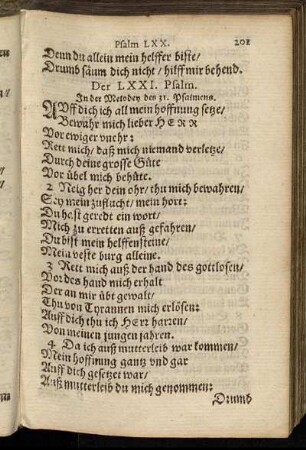 Psalm LXX. 201
Denn du allein mein helffer biste/
Drumb säum dich nicht/ hilff mir behend.
Der LXXI. Psalm.
In der Melodey des 31. Psalmens.
AUff dich ich all mein hoffnung setze/
Bewahr mich lieber HERR
Vor ewiger vnehr:
Rett mich/ daß mich niemand verletze/
Durch deine grosse Güte
Vor übel mich behüte.
2 Neig her dein ohr/ thu mich bewahren/
Sey mein zuflucht/ mein hort:
Du hast geredt ein wort/
Mich zu erretten auß gefahren/
Du bist mein helffensteine/
Mein veste burg alleine.
3 Rett mich auß der hand des gottlosen/
Vor des hand mich erhalt
Der an mir übt gewalt/
Thu von Tyrannen mich erlösen:
Auff dich thu ich HErr harren/
Von meinen jungen jahren.
4 Da ich auß mutterleib war kommen/
Mein hoffnung gantz vnd gar
Auff dich gesetzet war/
Auß mutterleib du mich genommen:
Drumb